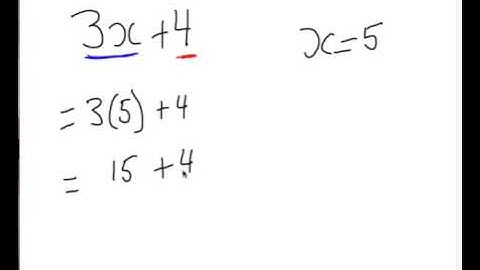 3x + 4
x = 5
= 3(5) + 4
= 15 + 4